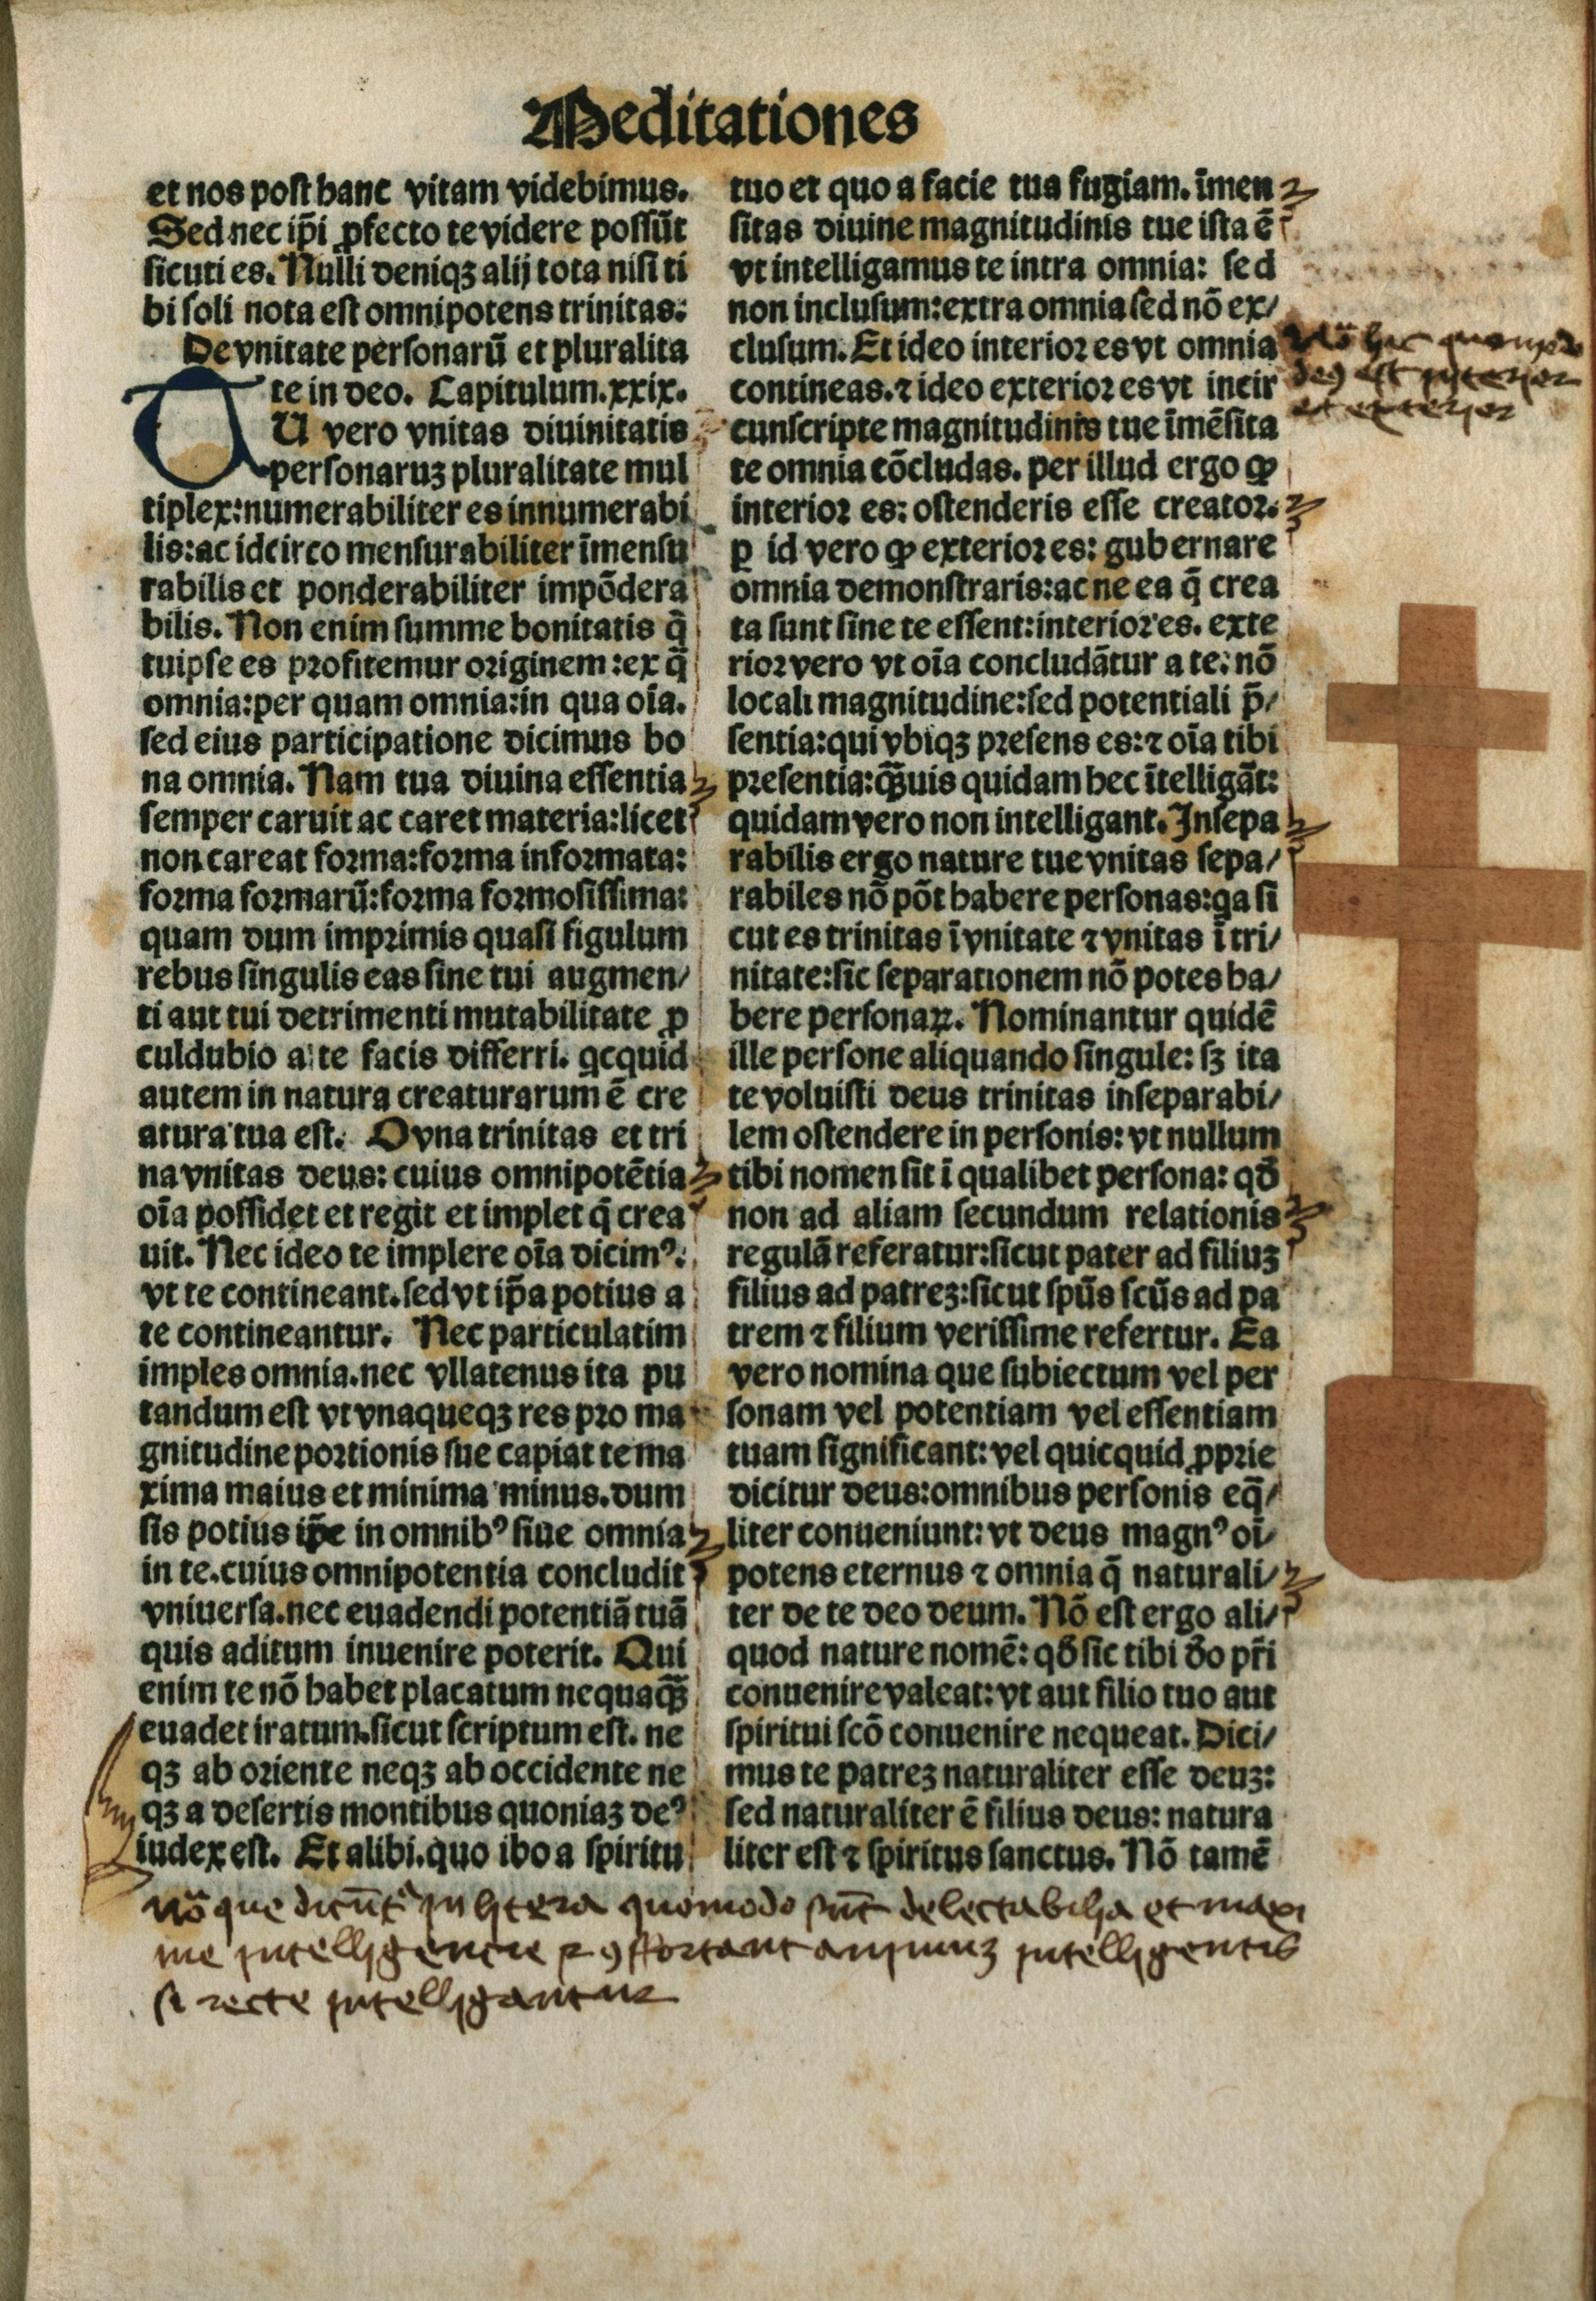 Meditationes
et nos post hanc vitam videbimus.
Sed nec ip̄i ꝓfecto te videre possūt
sicuti es. Nulli deniqꝫ alij tota nisi ti
bi soli nota est omnipotens trinitas:
De vnitate personarū et pluralita
te in deo. Capitulum. xxix.
TU vero vnitas diuinitatis
personaruꝫ pluralitate mul
tiplex: numerabiliter es innumerabi
lis: ac idcirco mensurabiliter īmensu
rabilis et ponderabiliter impōdera
bilis. Non enim summe bonitatis q̄
tuipse es profitemur originem: ex q̄
omnia: per quam omnia: in qua oīa.
sed eius participatione dicimus bo
na omnia. Nam tua diuina essentia
semper caruit ac caret materia: licet
non careat forma: forma informata:
forma formarū: forma formosissima:
quam dum imprimis quasi figulum
rebus singulis eas sine tui augmen/
ti aut tui detrimenti mutabilitate ꝓ
culdubio a te facis differri. qcquid
autem in natura creaturarum ē cre
atura tua est. O vna trinitas et tri
na vnitas deus: cuius omnipotētia
oīa possidet et regit et implet q̄ crea
uit. Nec ideo te implere oīa dicimꝰ:
vt te contineant. sed vt ip̄a potius a
te contineantur. Nec particulatim
imples omnia. nec vllatenus ita pu
tandum est vt vnaqueqꝫ res pro ma
gnitudine portionis sue capiat te ma
xima maius et minima minus. dum
sis potius ip̄e in omnibꝰ siue omnia
in te. cuius omnipotentia concludit
vniuersa. nec euadendi potentiā tuā
quis aditum inuenire poterit. Qui
enim te nō habet placatum nequaq̄ꝫ
euadet iratum. sicut scriptum est. ne
qꝫ ab oriente neqꝫ ab occidente ne
qꝫ a desertis montibus quoniaꝫ deꝰ
iudex est. Et alibi. quo ibo a spiritu
tuo et quo a facie tua fugiam. īmen
sitas diuine magnitudinis tue ista ē
vt intelligamus te intra omnia: sed
non inclusum: extra omnia sed nō ex/
clusum. Et ideo interior es vt omnia
contineas. ⁊ ideo exterior es vt incir
cunscripte magnitudinis tue īmēsita
te omnia cōcludas. per illud ergo ꝙ
interior es: ostenderis esse creator.
ꝑ id vero ꝙ exterior es: gubernare
omnia demonstraris: ac ne ea q̄ crea
ta sunt sine te essent: interior es. exte
rior vero vt oīa concludātur a te: nō
locali magnitudine: sed potentiali p̄/
sentia: qui vbiqꝫ presens es: ⁊ oīa tibi
presentia: q̄ꝫuis quidam hec ītelligāt:
quidam vero non intelligant. Insepa
rabilis ergo nature tue vnitas sepa/
rabiles nō pōt habere personas: qa si
cut es trinitas ī vnitate ⁊ vnitas ī tri/
nitate: sic separationem nō potes ha/
bere personaꝝ. Nominantur quidē
ille persone aliquando singule: sꝫ ita
te voluisti deus trinitas inseparabi/
lem ostendere in personis: vt nullum
tibi nomen sit ī qualibet persona: qđ
non ad aliam secundum relationis
regulā referatur: sicut pater ad filiuꝫ
filius ad patreꝫ: sicut spūs scūs ad pa
trem ⁊ filium verissime refertur. Ea
vero nomina que subiectum vel per
sonam vel potentiam vel essentiam
tuam significant: vel quicquid ꝓprie
dicitur deus: omnibus personis eq̄/
liter conueniunt: vt deus magnꝰ oī/
potens eternus ⁊ omnia q̄ naturali/
ter de te deo deum. Nō est ergo ali/
quod nature nomē: qđ sic tibi đo pr̄i
conuenire valeat: vt aut filio tuo aut
spiritui scō conuenire nequeat. Dici/
mus te patreꝫ naturaliter esse deuꝫ:
sed naturaliter ē filius deus: natura
liter est ⁊ spiritus sanctus. Nō tamē
No hic quomodo
deꝰ est interior
et exterior
No que dicūt in litera quomodo sūt delectabilia et maxi
me intelligencie ⁊ ꝯfortant animuꝫ intelligentis
si recte intelligantur